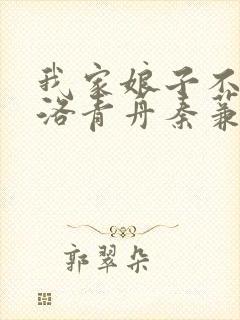 我家娘子不
洛青丹秦蒹
郭翠朵